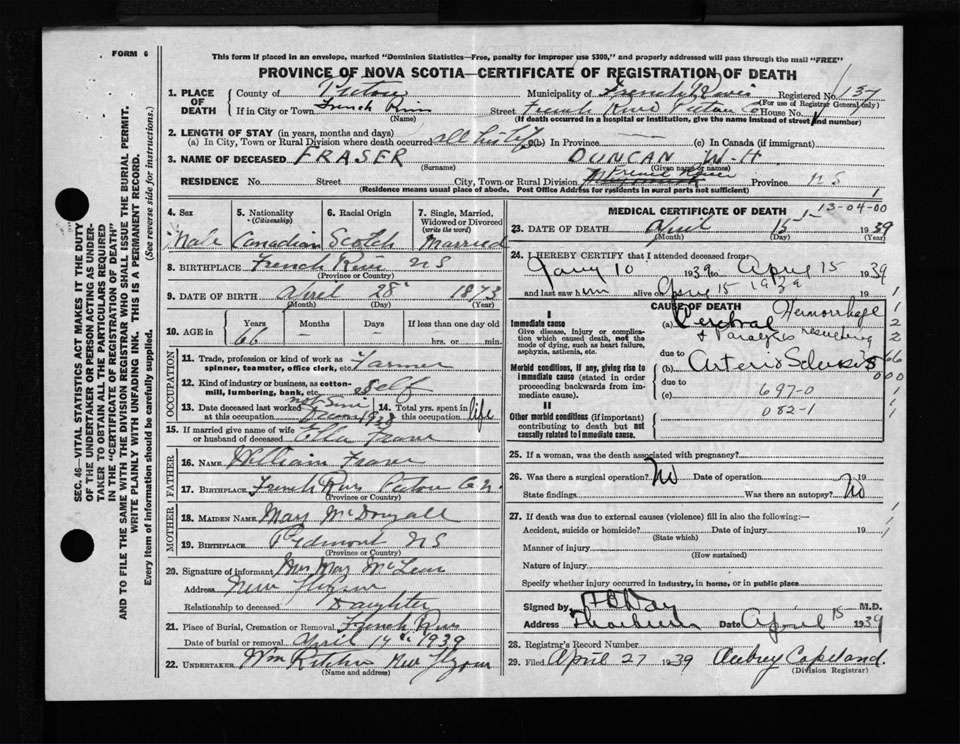 FORM 6
This form if placed in an envelope, marked "Dominion Statistics—Free, penalty for improper use $300," and properly addressed will pass through the mail "FREE"
PROVINCE OF NOVA SCOTIA—CERTIFICATE OF REGISTRATION OF DEATH
1. PLACE OF DEATH
County of Pictou Municipality of French River Registered No. 137
(For use of Registrar General only)
If in City or Town French River Street French River Pictou Co House No.
(Name) (If death occurred in a hospital or institution, give the name instead of street and number)
2. LENGTH OF STAY (in years, months and days)
(a) In City, Town or Rural Division where death occurred all his life (b) In Province (c) In Canada (if immigrant)
3. NAME OF DECEASED FRASER DUNCAN W.H.
(Surname) (Given name or names)
RESIDENCE No. Street City, Town or Rural Division French River Province NS
(Residence means usual place of abode. Post Office Address for residents in rural parts not sufficient)
4. Sex
Male
5. Nationality
(Citizenship)
Canadian
6. Racial Origin
Scotch
7. Single, Married, Widowed or Divorced
(write the word)
Married
8. BIRTHPLACE French River NS
(Province or Country)
9. DATE OF BIRTH April 28 1873
(Month) (Day) (Year)
10. AGE in Years Months Days If less than one day old
66 hrs. or min.
OCCUPATION
11. Trade, profession or kind of work as spinner, teamster, office clerk, etc. Farmer
12. Kind of industry or business, as cotton-mill, lumbering, bank, etc. Self
13. Date deceased last worked at this occupation not since
14. Total yrs. spent in this occupation life
15. If married give name of wife or husband of deceased Ella Fraser
FATHER
16. NAME William Fraser
17. BIRTHPLACE French River Pictou Co N.S.
(Province or Country)
MOTHER
18. MAIDEN NAME Mary McDougall
19. BIRTHPLACE Piedmont NS
(Province or Country)
20. Signature of informant Mrs May McLean
Address New Glasgow
Relationship to deceased Daughter
21. Place of Burial, Cremation or Removal French River
Date of burial or removal April 17 1939
22. UNDERTAKER Wm Ritchie New Glasgow
(Name and address)
MEDICAL CERTIFICATE OF DEATH
13-04-00
23. DATE OF DEATH April 15 1939
(Month) (Day) (Year)
24. I HEREBY CERTIFY that I attended deceased from:
Jany 10 1939 to April 15 1939
and last saw him alive on April 15 1939
CAUSE OF DEATH
I
Immediate cause
Give disease, injury or complication which caused death, not the mode of dying, such as heart failure, asphyxia, asthenia, etc.
(a) Cerebral Hemorrhage
& Paralysis resulting
due to
Morbid conditions, if any, giving rise to immediate cause (stated in order proceeding backwards from immediate cause).
(b) Arterio Sclerosis
due to
(c) 697-0
082-1
II
Other morbid conditions (if important) contributing to death but not causally related to immediate cause.
25. If a woman, was the death associated with pregnancy?
26. Was there a surgical operation? No Date of operation 19
State findings Was there an autopsy? No
27. If death was due to external causes (violence) fill in also the following:—
Accident, suicide or homicide? Date of injury 19
(State which)
Manner of injury
(How sustained)
Nature of injury
Specify whether injury occurred in industry, in home, or in public place
Signed by M.D.
Address Thorburn Date April 15 1939
28. Registrar's Record Number
29. Filed April 27 1939 Aubrey Copeland.
(Division Registrar)
SEC. 46—VITAL STATISTICS ACT MAKES IT THE DUTY OF THE UNDERTAKER OR PERSON ACTING AS UNDERTAKER TO OBTAIN ALL THE PARTICULARS REQUIRED IN THE "CERTIFICATE OF REGISTRATION OF DEATH"
AND TO FILE THE SAME WITH THE DIVISION REGISTRAR WHO SHALL ISSUE THE BURIAL PERMIT.
WRITE PLAINLY WITH UNFADING INK. THIS IS A PERMANENT RECORD.
Every item of information should be carefully supplied. (See reverse side for instructions.)